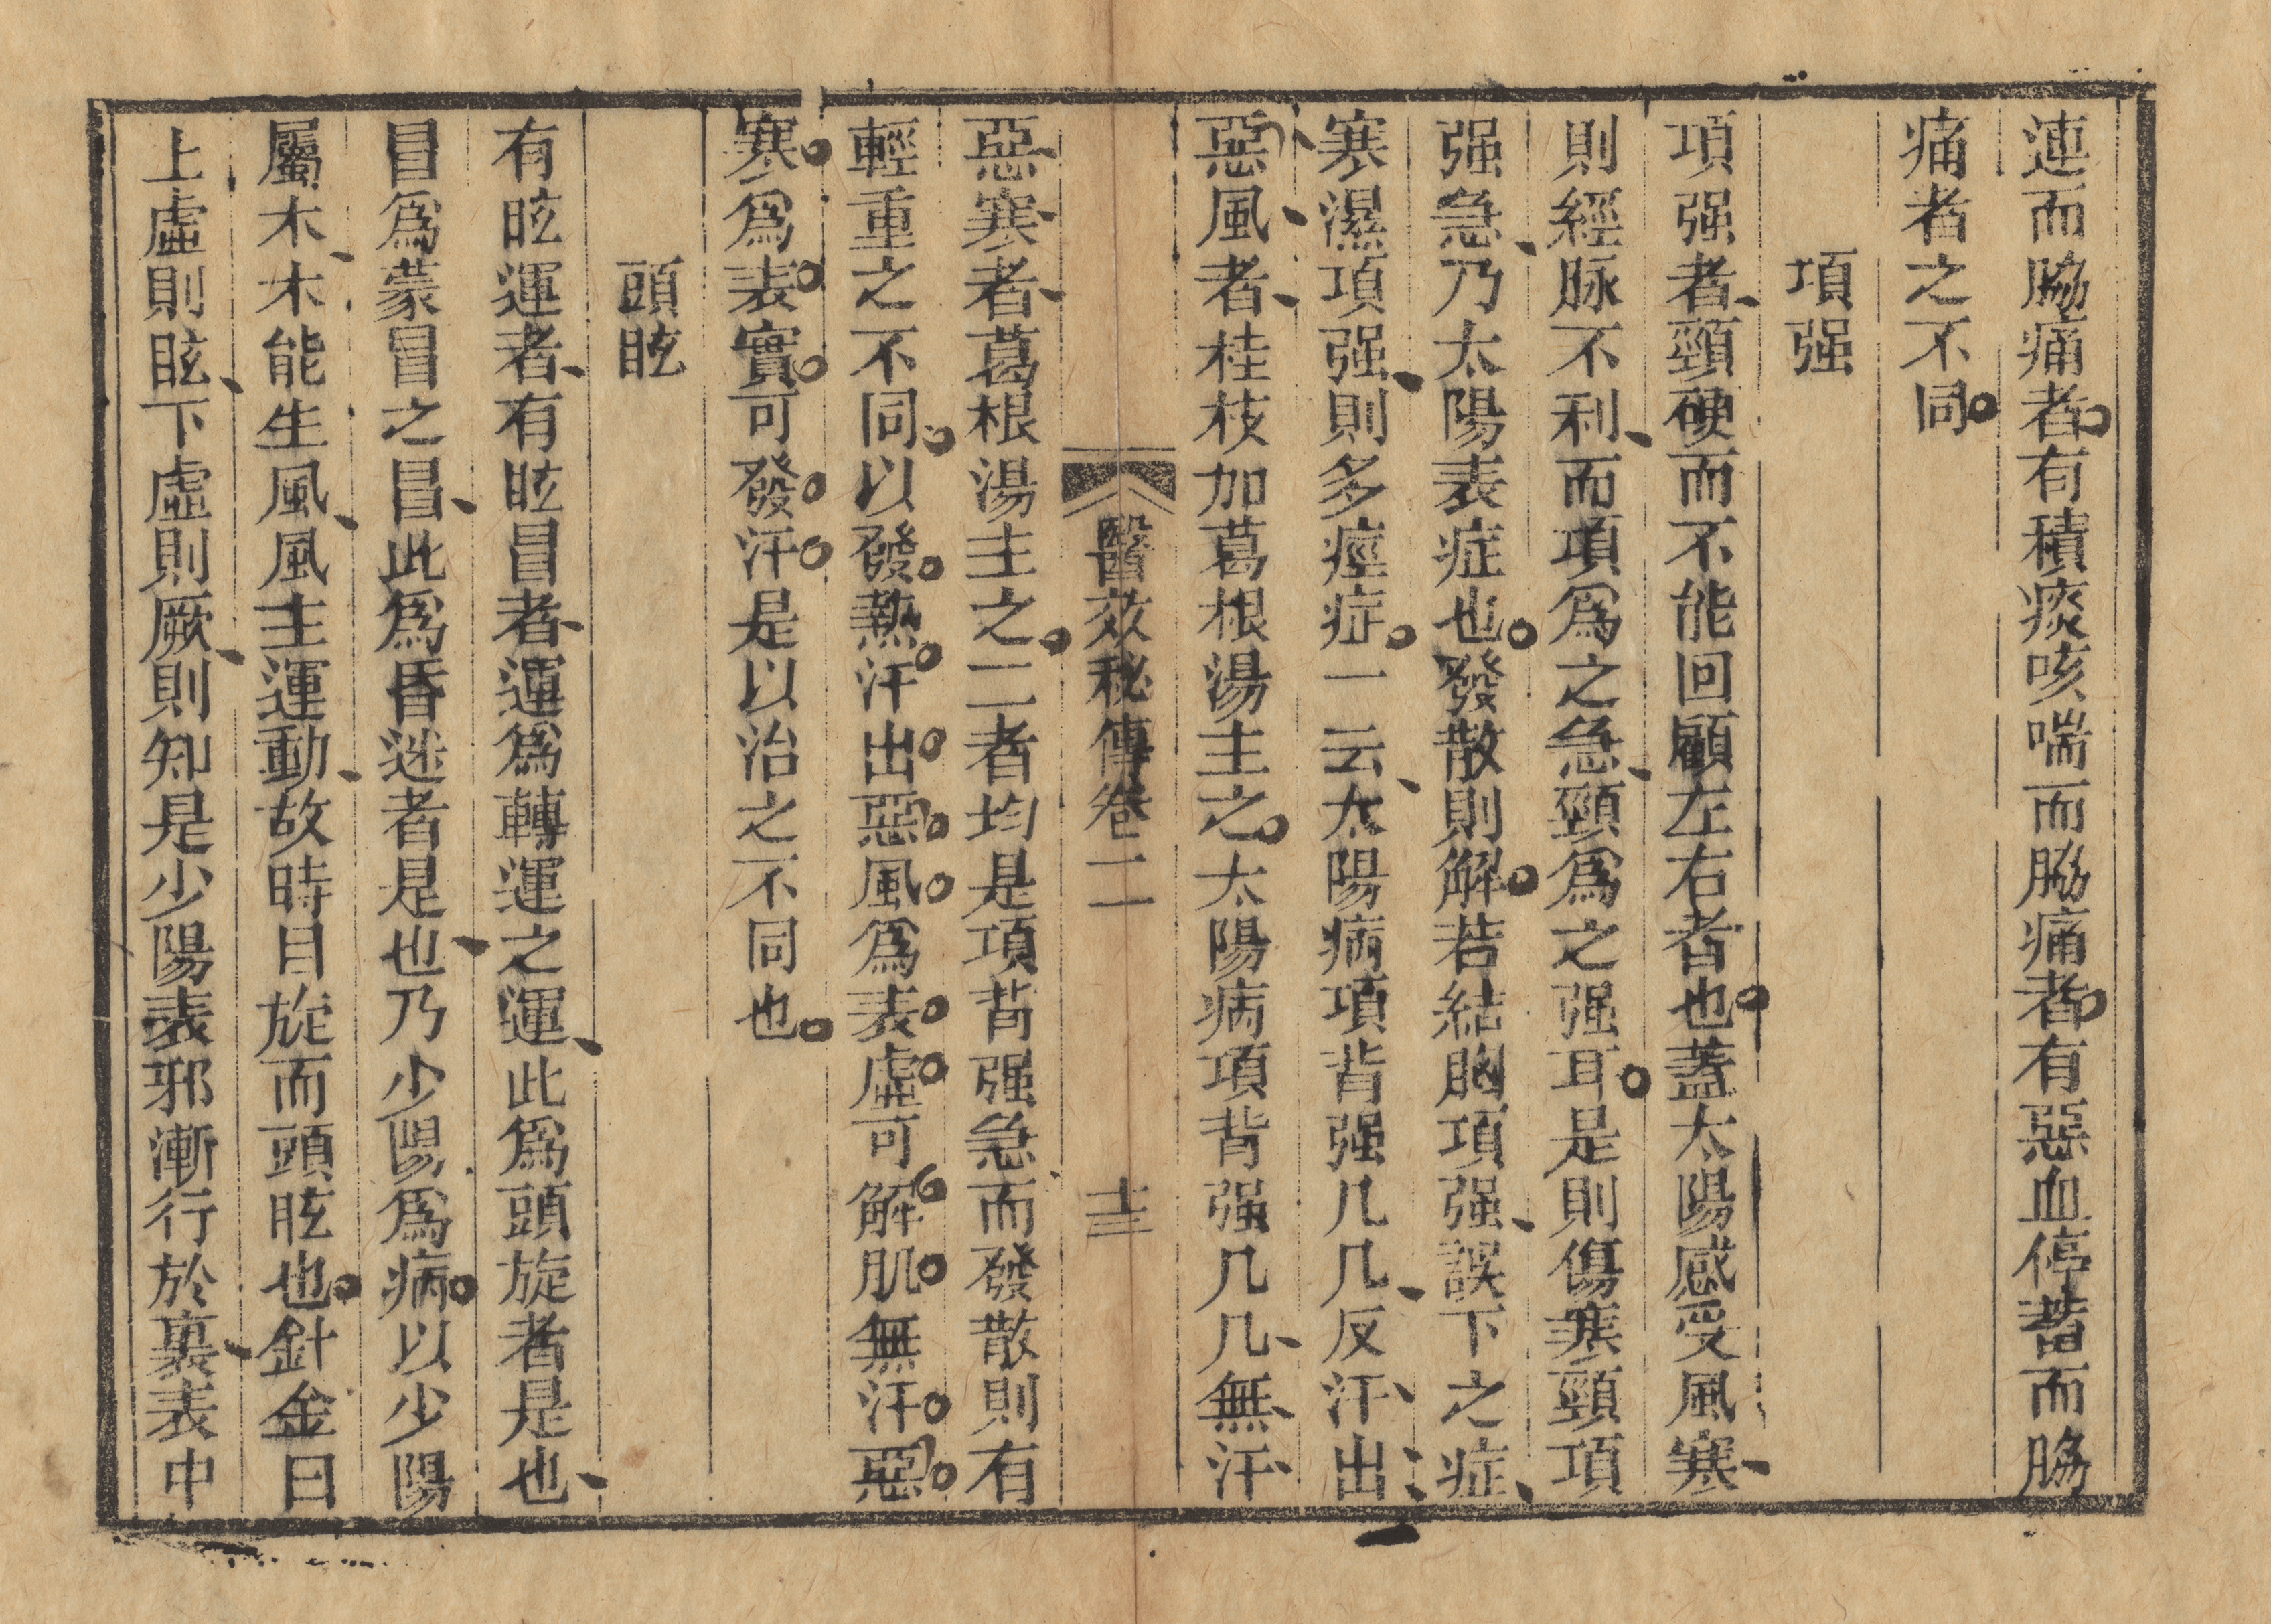 連而脇痛者有積痰咳喘而脇痛者有惡血停蓄而脇
痛者之不同
項强
項强者頸硬而不能回顧左右者也蓋太陽感受風寒
則經脉不利而項爲之急頸爲之强耳是則傷寒頸項
强急乃太陽表症也發散則解若結胸項强誤下之症
寒濕項强則多痙症一云太陽病項背强几几反汗出
惡風者桂枝加葛根湯主之太陽病項背强几几無汗
醫效秘傳卷二 十三
惡寒者葛根湯主之二者均是項背强急而發散則有
輕重之不同以發熱汗出惡風爲表虛可解肌無汗惡
寒爲表實可發汗是以治之不同也
頭眩
有眩運者有眩冒者運爲轉運之運此爲頭旋者是也
冒爲蒙冒之冒此爲昏迷者是也乃少陽爲病以少陽
屬木木能生風風主運動故時目旋而頭眩也針金曰
上虛則眩下虛則厥則知是少陽表邪漸行於裏表中